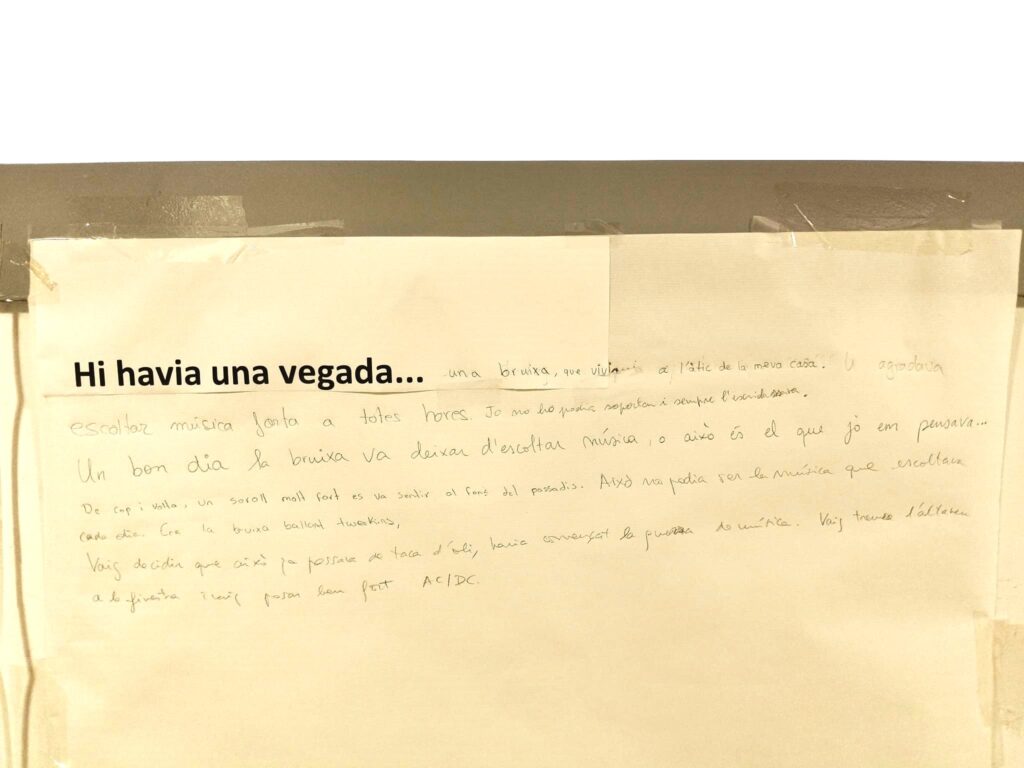 Hi havia una vegada... una bruixa, que vivia a l'àtic de la meva casa. Li agradava
escoltar música forta a totes hores. Jo no ho podia suportar i sempre l'escridassava.
Un bon dia la bruixa va deixar d'escoltar música, o això és el que jo em pensava...
De cop i volta, un soroll molt fort es va sentir al fons del passadís. Això no podia ser la música que escoltava
cada dia. Era la bruixa ballant
Vaig decidir que això ja passava de taca d'oli, havia començat la guerra de música. Vaig treure l'altaveu
a la finestra i vaig posar ben fort AC/DC.